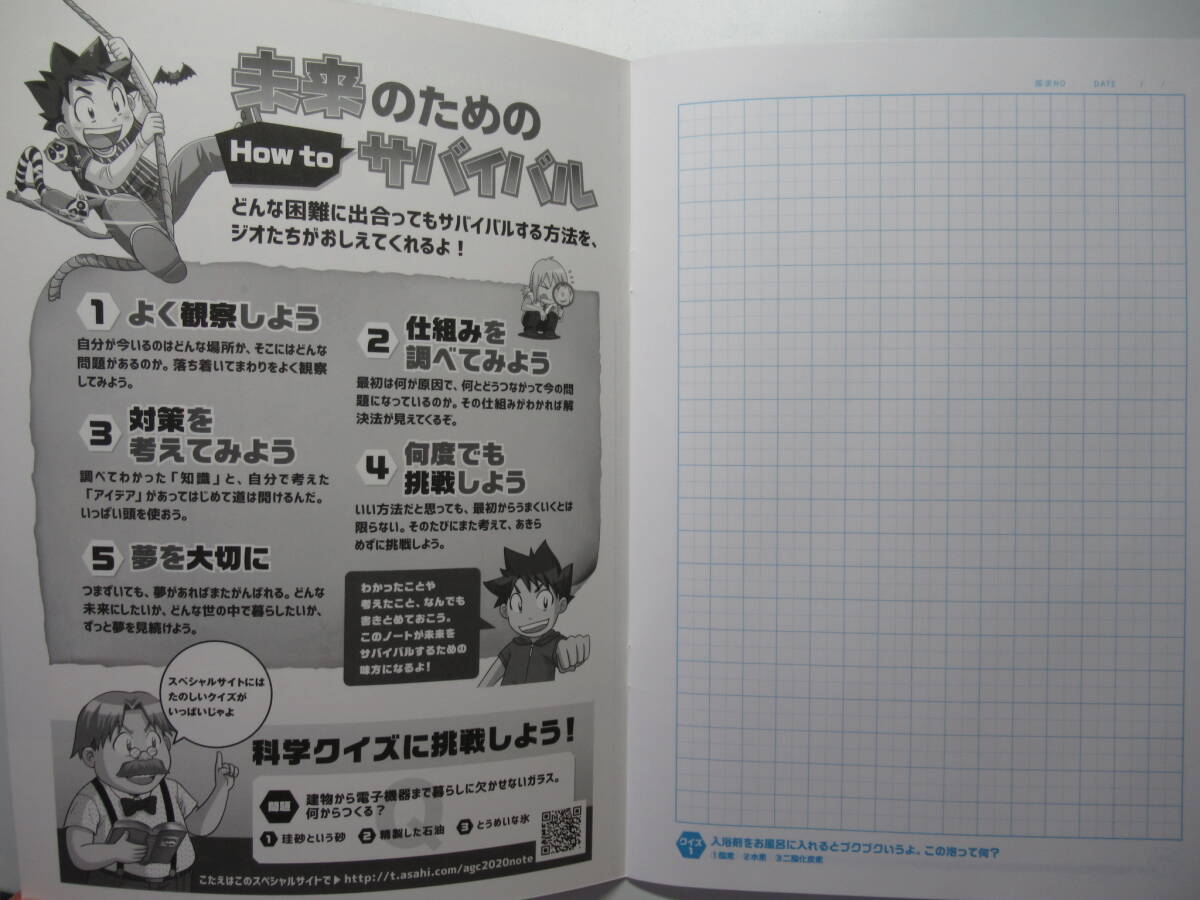 未来のための
How to サバイバル
どんな困難に出合ってもサバイバルする方法を、
ジオたちがおしえてくれるよ！
1 よく観察しよう
自分が今いるのはどんな場所か、そこにはどんな
問題があるのか。落ち着いてまわりをよく観察
してみよう。
2 仕組みを
調べてみよう
最初は何が原因で、何とどうつながって今の問
題になっているのか。その仕組みがわかれば解
決法が見えてくるぞ。
3 対策を
考えてみよう
調べてわかった「知識」と、自分で考えた
「アイデア」があってはじめて道は開けるんだ。
いっぱい頭を使おう。
4 何度でも
挑戦しよう
いい方法だと思っても、最初からうまくいくとは
限らない。そのたびにまた考えて、あきら
めずに挑戦しよう。
5 夢を大切に
つまずいても、夢があればまたがんばれる。どんな
未来にしたいか、どんな世の中で暮らしたいか、
ずっと夢を見続けよう。
わかったことや
考えたこと、なんでも
書きとめておこう。
このノートが未来を
サバイバルするための
味方になるよ！
スペシャルサイトには
たのしいクイズが
いっぱいじゃよ
科学クイズに挑戦しよう！
問題 建物から電子機器まで暮らしに欠かせないガラス。
何からつくる？
1 珪砂という砂 2 精製した石油 3 とうめいな氷
こたえはこのスペシャルサイトで▶http://t.asahi.com/agc2020note
探求NO DATE / /
クイズ1 入浴剤をお風呂に入れるとブクブクいうよ。この泡って何？
①酸素 ②水素 ③二酸化炭素